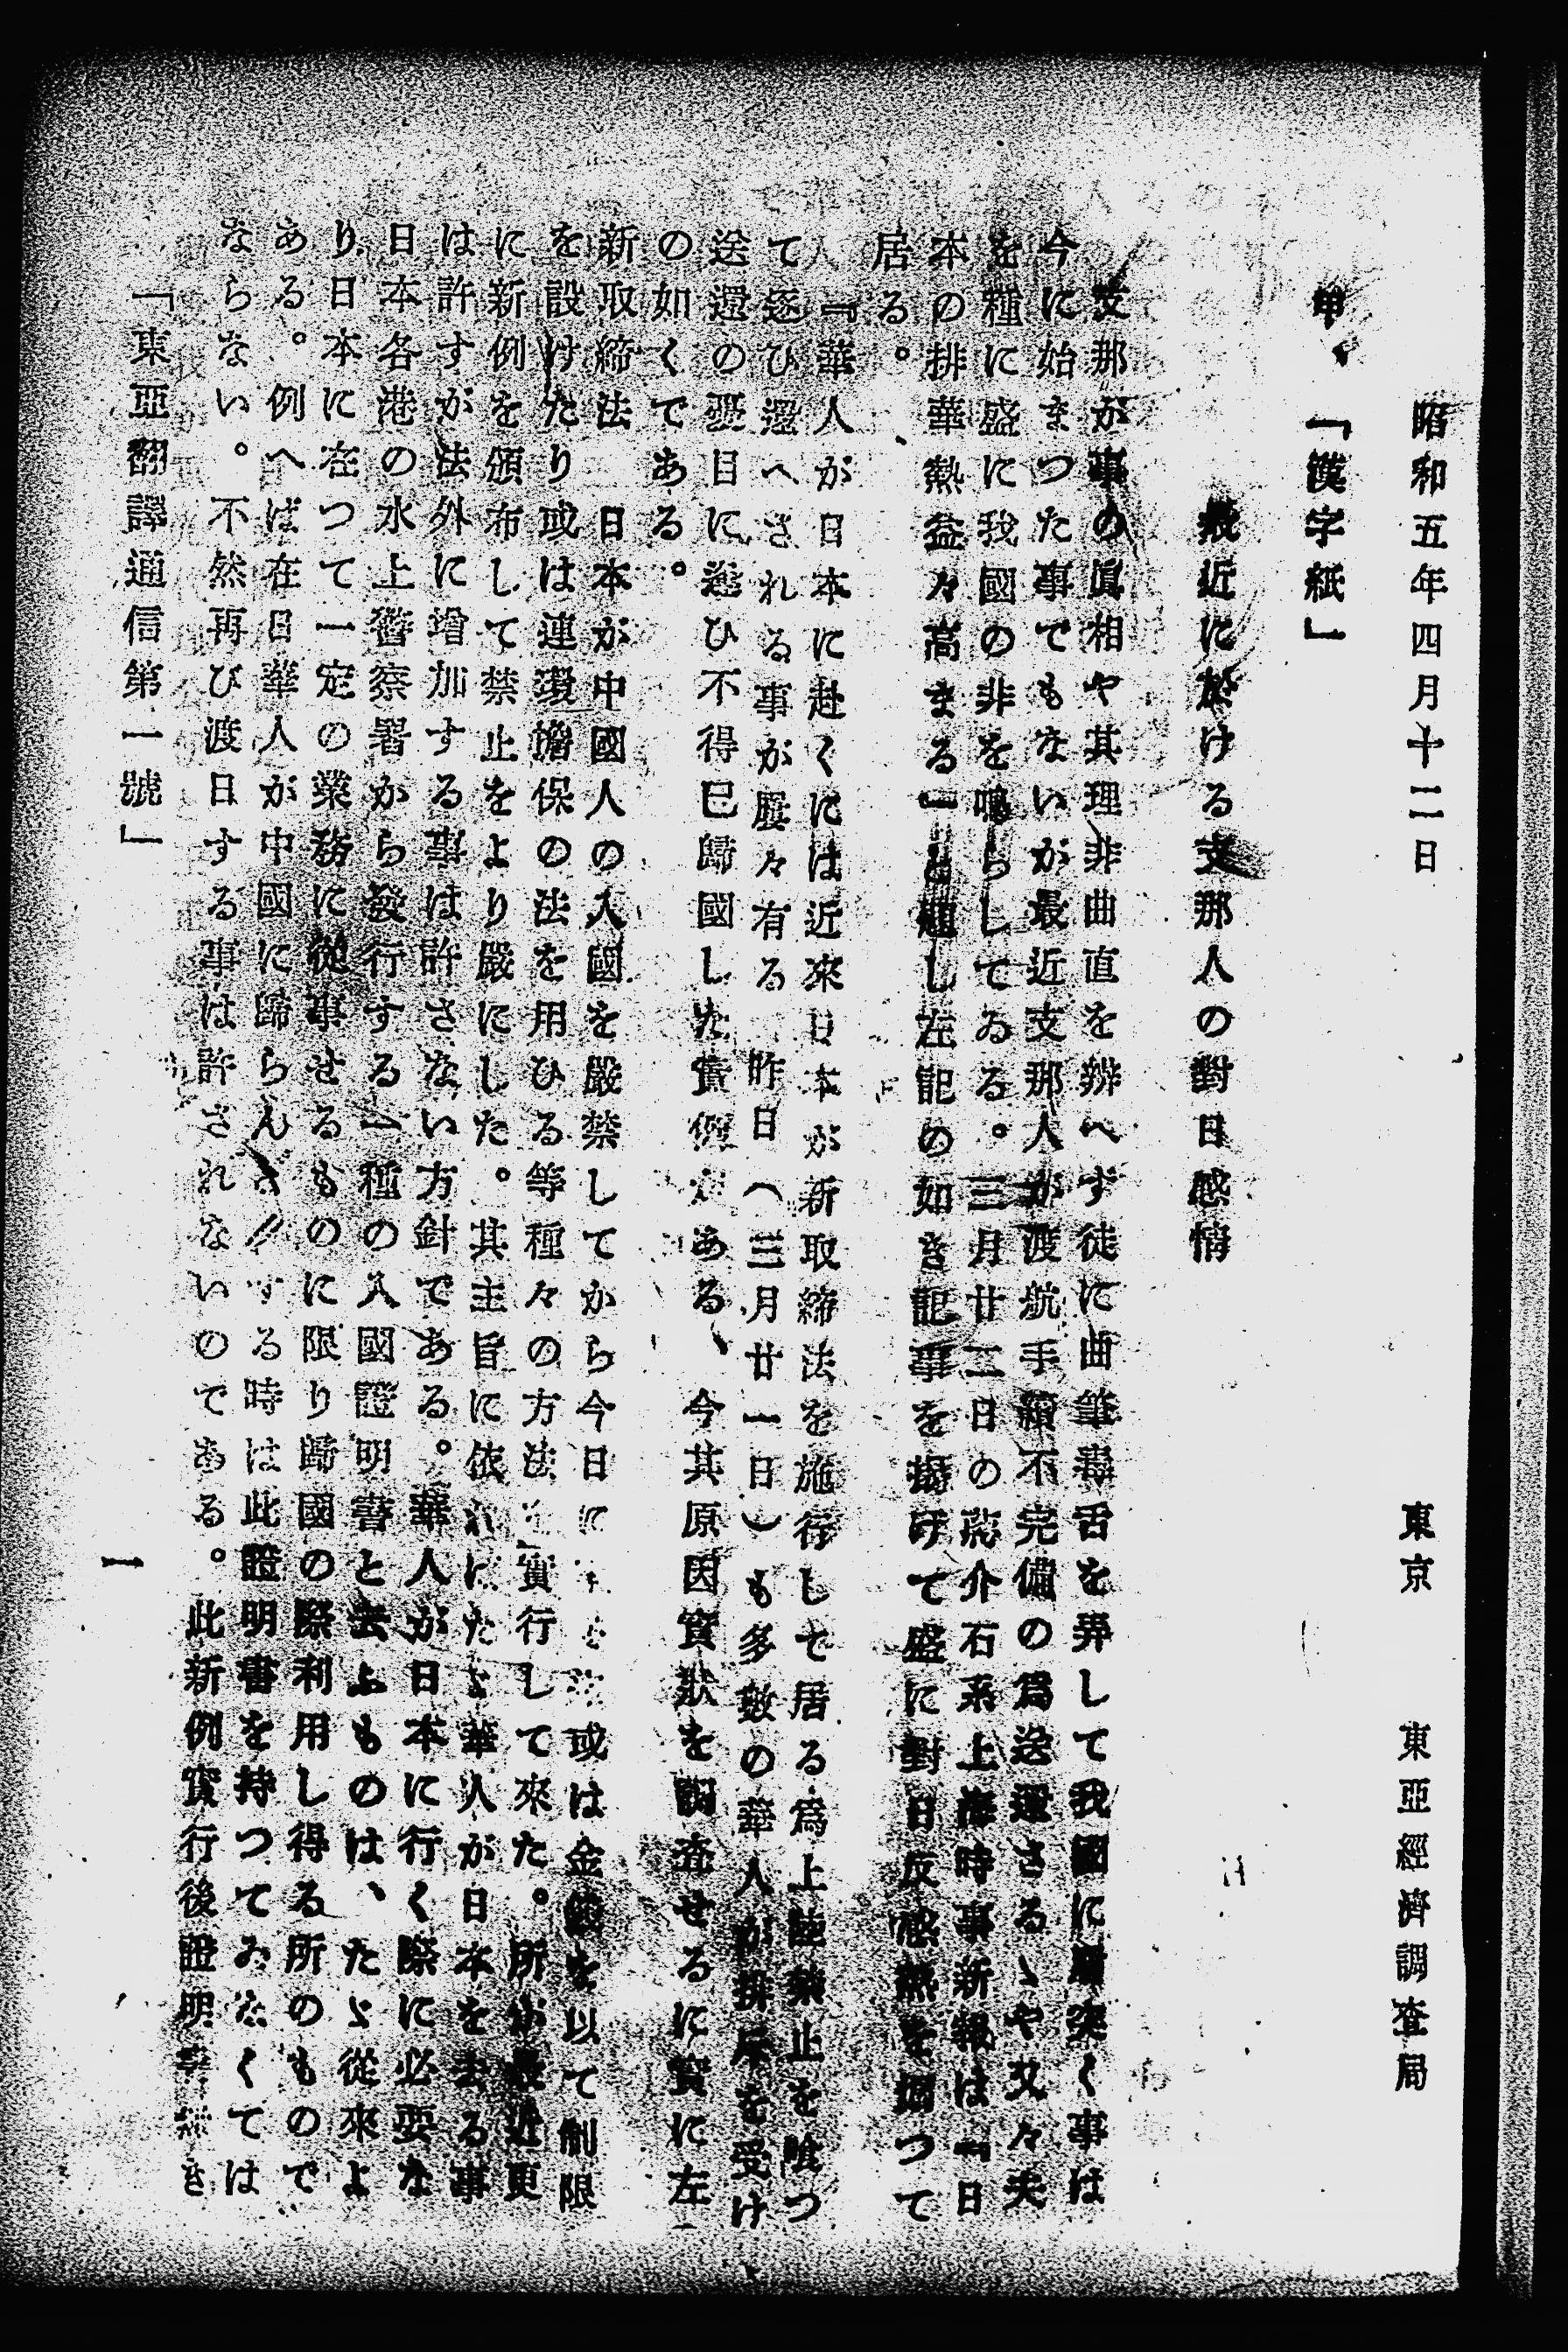 昭和五年四月十二日　東京　東亞經濟調査局
甲、「漢字紙」
最近に於ける支那人の對日感情
支那が事の眞相や其理非曲直を辨へず徒に曲筆毒舌を弄して我國に楯突く事は
今に始まつた事でもないが最近支那人が渡航手續不完備の爲送還さるゝや又々夫
を種に盛に我國の非を鳴らしてゐる。三月廿二日の蔣介石系上海時事新報は『日
本の排華熱益々高まる』と題し左記の如き記事を揭げて盛に對日反感熱を煽つて
居る。
『華人が日本に赴くには近來日本が新取締法を施行して居る爲上陸禁止を喰つ
て逐ひ還へされる事が屢々有る　昨日（三月廿一日）も多數の華人が排斥を受け
送還の憂目に遭ひ不得已歸國した實例がある、今其原因實狀を調査せるに實に左
の如くである。
新取締法　日本が中國人の入國を嚴禁してから今日に 或は金錢を以て制限
を設けたり或は連環擔保の法を用ひる等種々の方法を實行して來た。所が最近更
に新例を頒布して禁止をより嚴にした。其主旨に依ればたとへ華人が日本を去る事
は許すが法外に增加する事は許さない方針である。華人が日本に行く際に必要な
日本各港の水上警察署から發行する一種の入國證明書と去ふものは、たゞ從來よ
り日本に在つて一定の業務に從事せるものに限り歸國の際利用し得る所のもので
ある。例へば在日華人が中國に歸らんとする時は此證明書を持つてゐなくては
ならない。不然再び渡日する事は許されないのである。此新例實行後證明書無き
「東亞翻譯通信第一號」
一